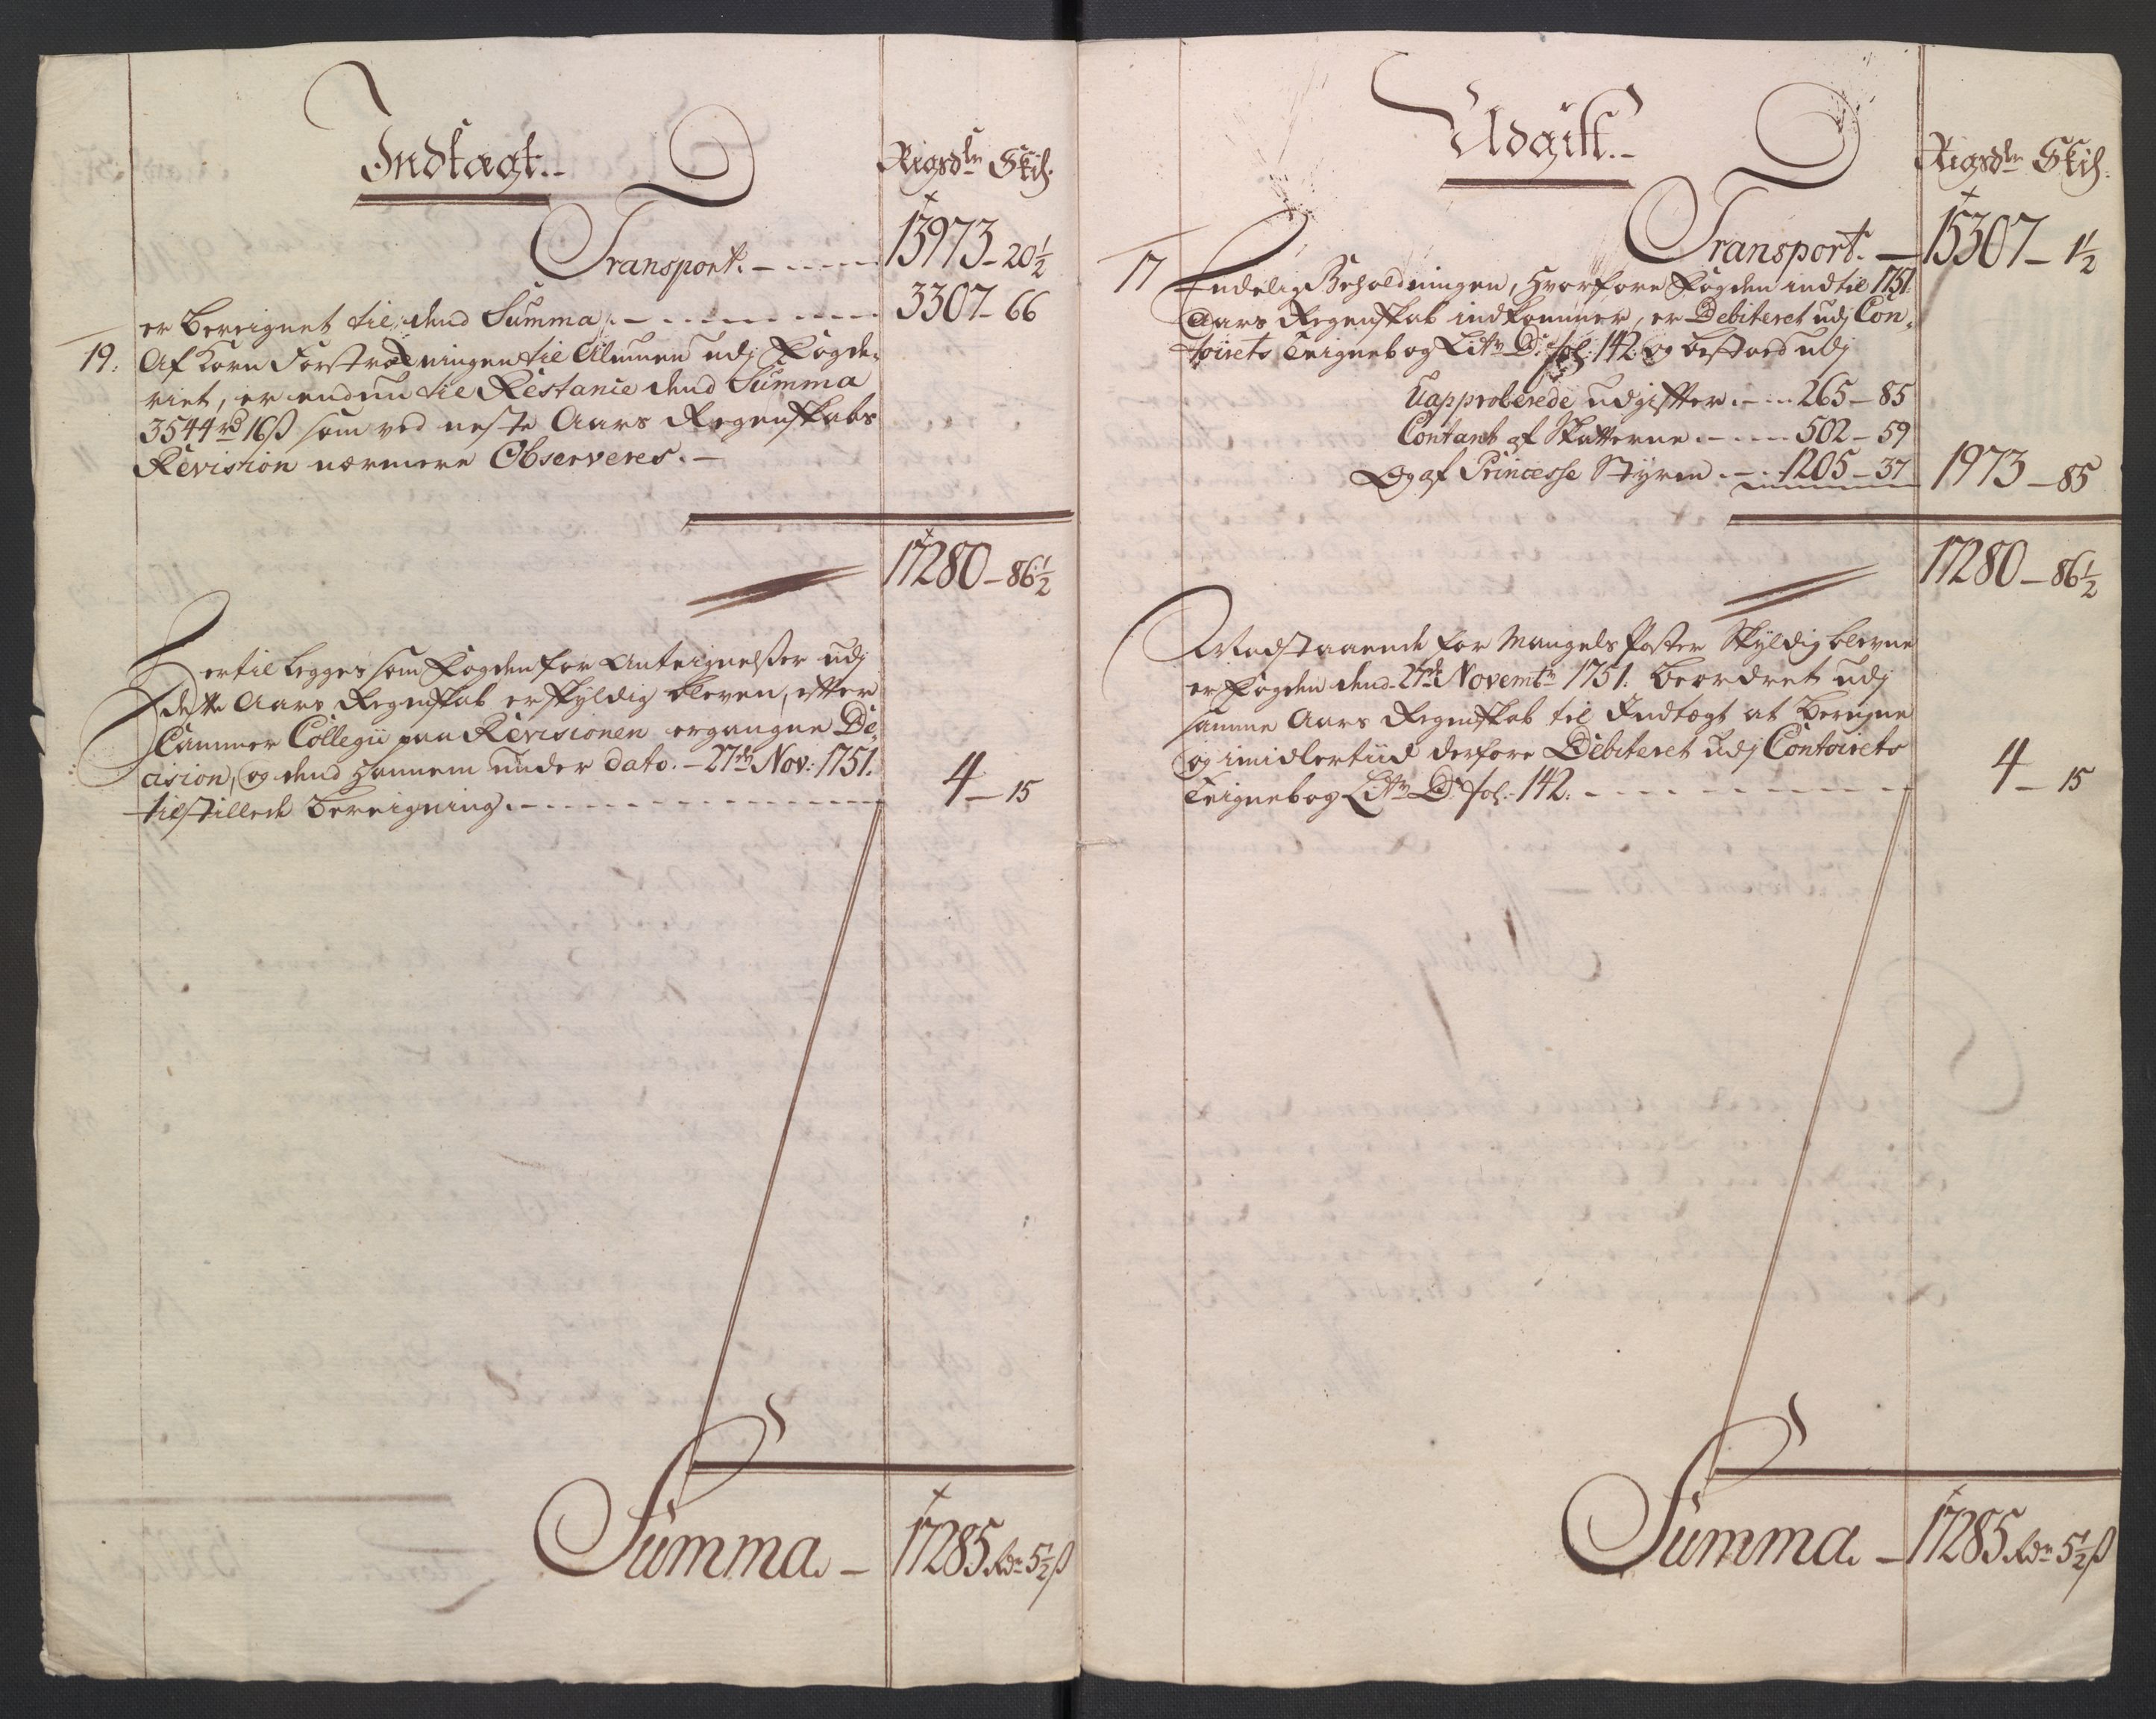 Indtægt.
Rigsdlr Skil:
Transport. — 13973 — 20½
er bereignet til dend Summa — 3307 — 66
19: Af Korn Forstræckningen til Almuen udj Fogde-
riet, er endnu til Restance dend Summa
3544 rd 16ß som ved neste Aars Regenskabs
Revision nærmere Observeres. —
17280 — 86½
Hertil legges som Fogden for Anteignelsser udj
dette Aars Regenskab er skyldig bleven, efter
Cammer Collegii paa Revisionen ergangne De-
cision, og dend hannem under dato. — 27de Nov: 1751.
tilstillede bereigning. — 4 — 15
Summa. — 17285 Rdr 5½ ß
Udgift.
Rigsdlr Skil:
Transport. — 15307 — 1½
17 Endelig Beholdningen, hvorfore Fogden indtil 1751.
Aars Regenskab indkommer, er Debiteret udj Con-
toirets Teignebog Litr D. fol: 142. og bestaaed udj
Uapproberede udgifter. — 265 — 85
Contant af Skatterne. — 502 — 59
Og af Princesse Styren. — 1205 — 37 1973 — 85
17280 — 86½
Modstaaende for Mangels Poster skyldig blevne
er Fogden dend 27de Novembr 1751. beordret udj
samme Aars Regenskab til Indtægt at berigne
og imidlertiid derfore Debiteret udj Contoirets
Teignebog Litr D. fol: 142. — 4 — 15
Summa. — 17285 Rdr 5½ ß